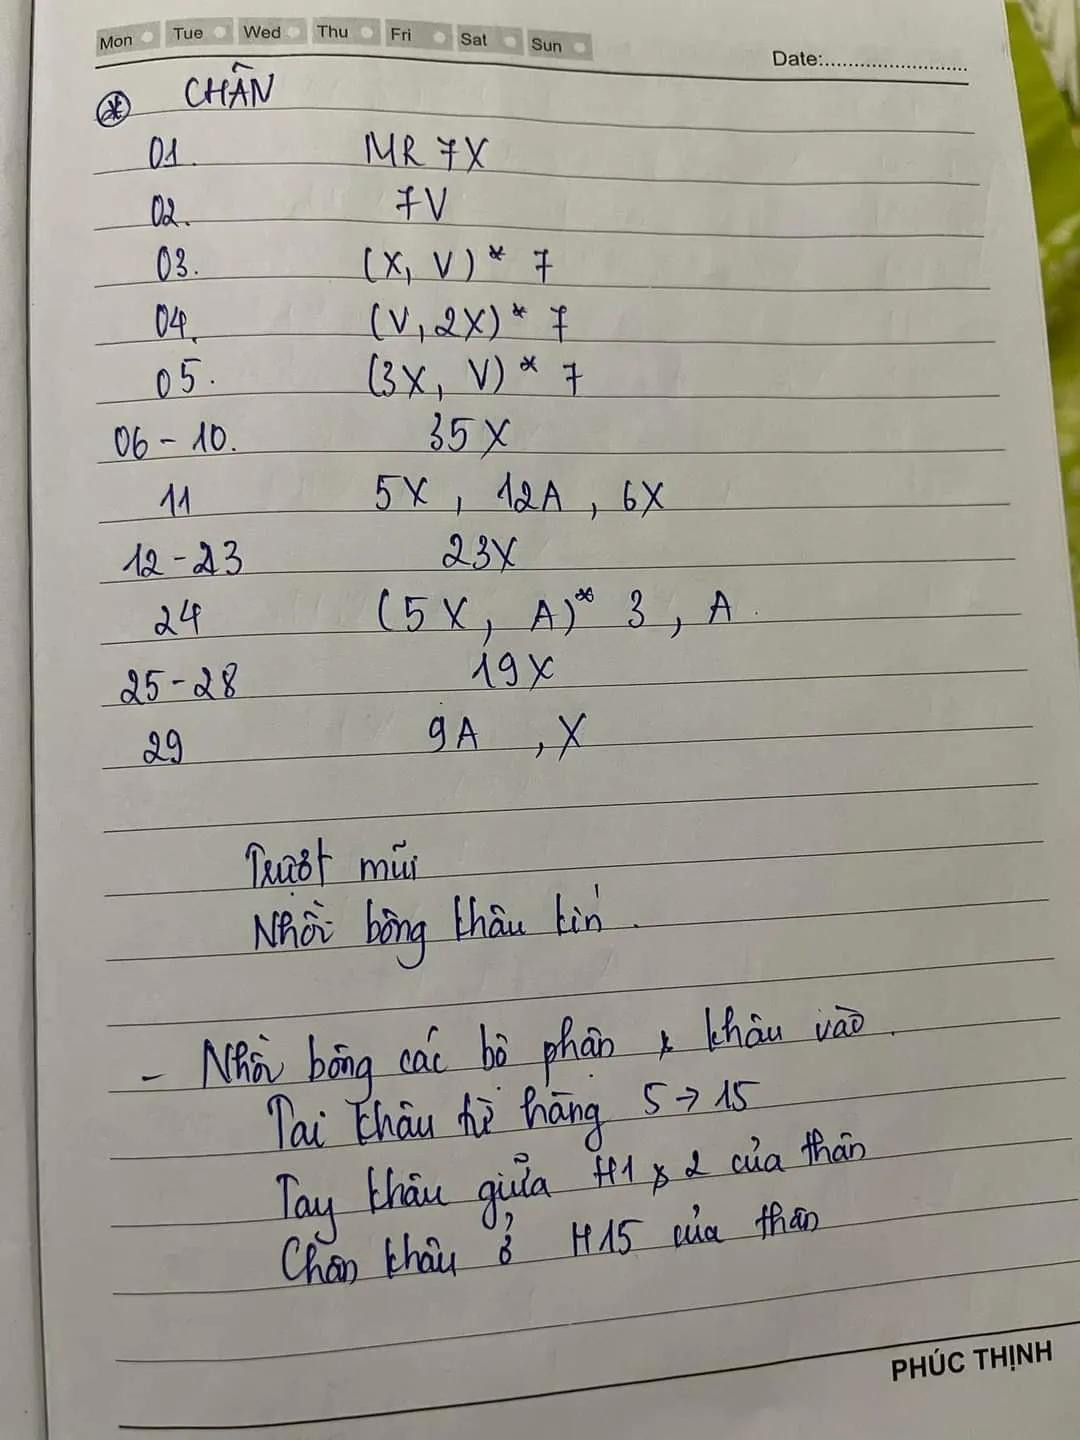 Mon Tue Wed Thu Fri Sat Sun
Date:
* CHÂN
01. MR 7X
02. 7V
03. (X, V) * 7
04. (V, 2X) * 7
05. (3X, V) * 7
06 - 10. 35X
11 5X, 12A, 6X
12 - 23 23X
24 (5X, A) * 3, A.
25 - 28 19X
29 9A, X
Trượt mũi
Nhồi bông khâu kín.
- Nhồi bông các bộ phận & khâu vào.
Tai khâu từ hàng 5 → 15
Tay khâu giữa H1 & 2 của thân
Chân khâu ở H15 của thân
PHÚC THỊNH